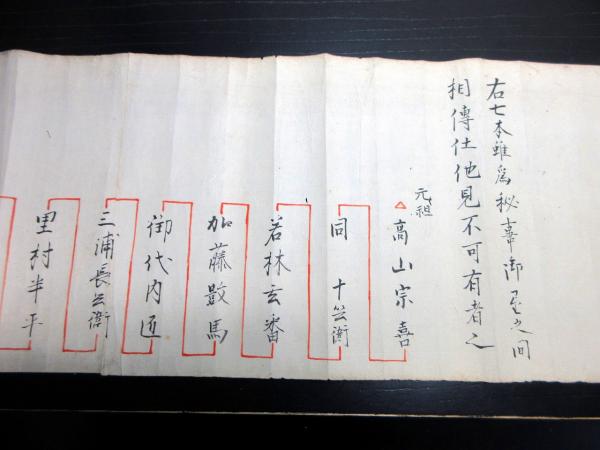 右七本雖為秘事御望之間
相傳仕他見不可有者之
元祖
高山宗喜
同 十兵衛
若林玄番
加藤數馬
御代内匠
三浦長兵衛
里村半平